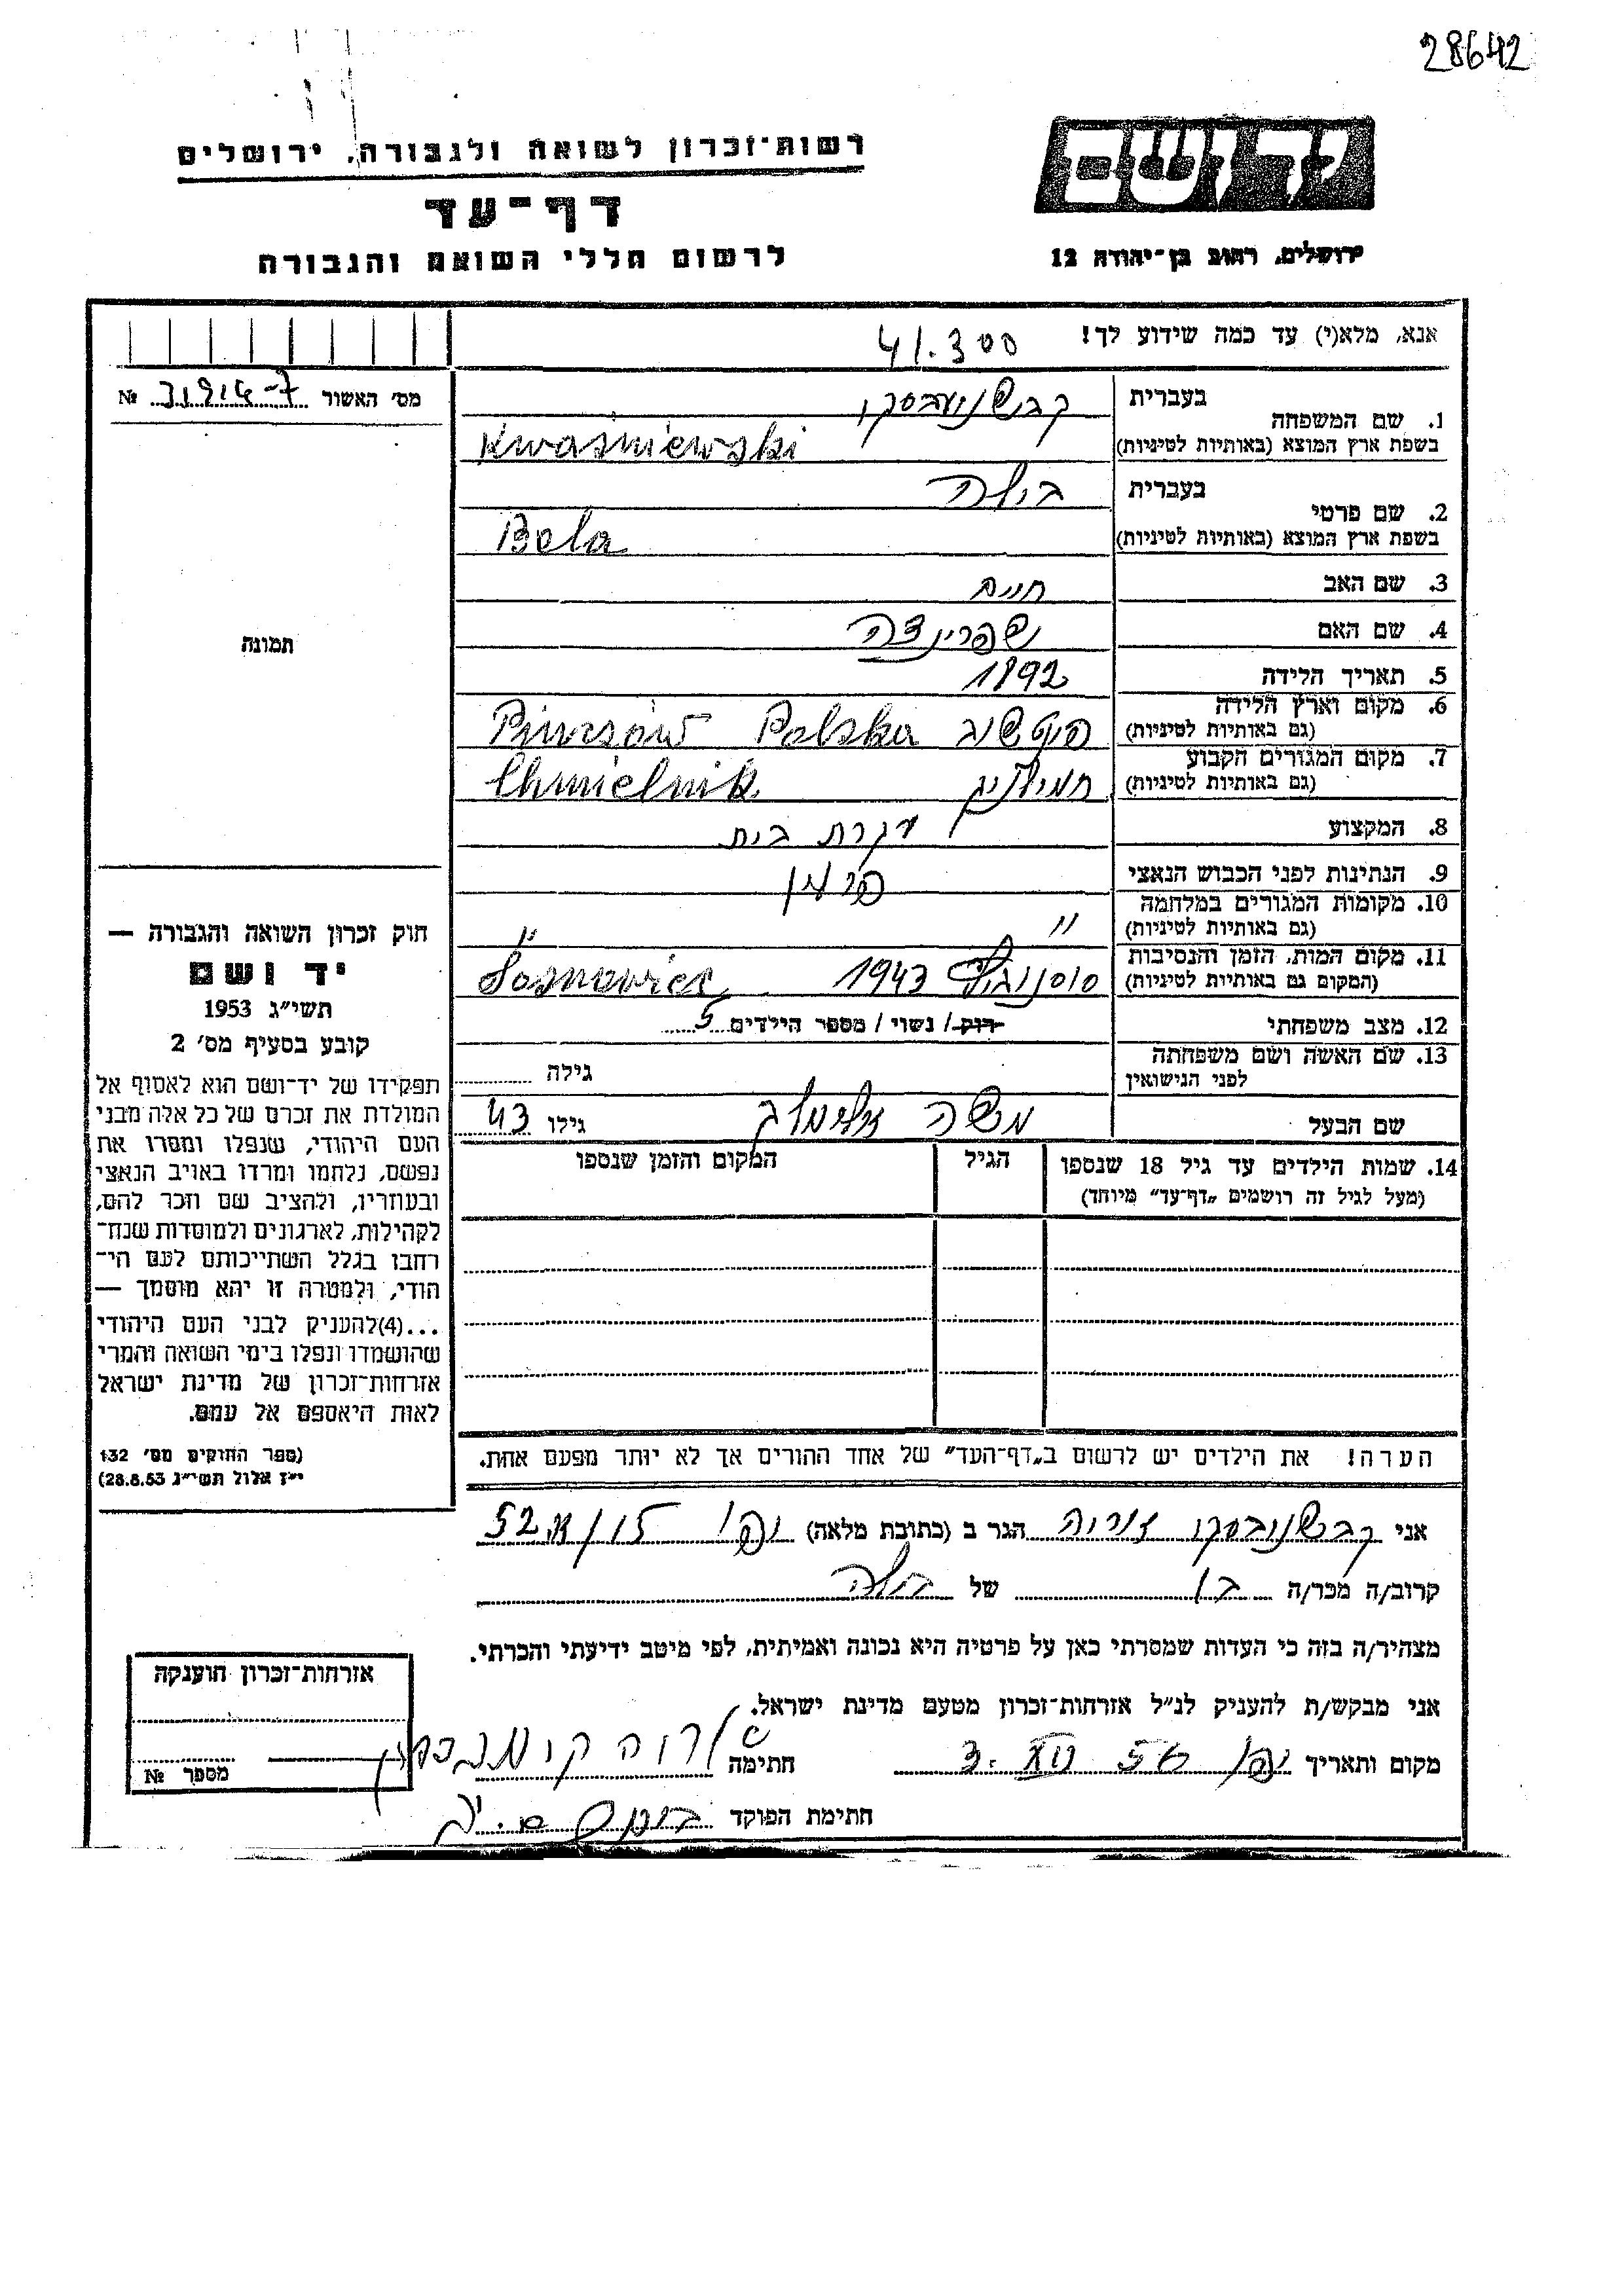 28642
יד ושם
ירושלים, רחוב בן־יהודה 12
רשות־זכרון לשואה ולגבורה, ירושלים
דף־עד
לרשום חללי השואה והגבורה
אנא, מלא(י) עד כמה שידוע לך!
41.300
מס׳ האשור № 
1. שם המשפחה
בעברית קבשנייבסקי
בשפת ארץ המוצא (באותיות לטיניות) Kwaśniewski
2. שם פרטי
בעברית בילה
בשפת ארץ המוצא (באותיות לטיניות) Bela
3. שם האב חיים
4. שם האם שפרינצה
5. תאריך הלידה 1892
6. מקום וארץ הלידה
(גם באותיות לטיניות) פינטשוב Pinczów Polska
7. מקום המגורים הקבוע
(גם באותיות לטיניות) חמילניק Chmielnik
8. המקצוע עקרת בית
9. הנתינות לפני הכבוש הנאצי פולין
10. מקומות המגורים במלחמה
(גם באותיות לטיניות) " "
11. מקום המות, הזמן והנסיבות
(המקום גם באותיות לטיניות) 1943 Sosnowiec
12. מצב משפחתי רוק / נשוי / מספר הילדים 5
13. שם האשה ושם משפחתה
לפני הנישואין
גילה
שם הבעל משה גילו 43
14. שמות הילדים עד גיל 18 שנספו
(מעל לגיל זה רושמים „דף־עד" מיוחד)
הגיל
המקום והזמן שנספו
הערה! את הילדים יש לרשום ב„דף־העד" של אחד ההורים אך לא יותר מפעם אחת.
תמונה
חוק זכרון השואה והגבורה —
יד ושם
תשי״ג 1953
קובע בסעיף מס׳ 2
תפקידו של יד־ושם הוא לאסוף אל
המולדת את זכרם של כל אלה מבני
העם היהודי, שנפלו ומסרו את
נפשם, נלחמו ומרדו באויב הנאצי
ובעוזריו, ולהציב שם וזכר להם,
לקהילות, לארגונים ולמוסדות שנח־
רחבו בגלל השתייכותם לעם הי־
הודי, ולמטרה זו יהא מוסמך —
...(4)להעניק לבני העם היהודי
שהושמדו ונפלו בימי השואה והמרי
אזרחות־זכרון של מדינת ישראל
לאות היאספם אל עמם.
(ספר החוקים מס׳ 132
י״ז אלול תשי״ג 28.8.53)
אני קבשנובסקי הגר ב (כתובת מלאה) יפו
קרוב/ה מכר/ה בן של בילה
מצהיר/ה בזה כי העדות שמסרתי כאן על פרטיה היא נכונה ואמיתית, לפי מיטב ידיעתי והכרתי.
אני מבקש/ת להעניק לנ״ל אזרחות־זכרון מטעם מדינת ישראל.
מקום ותאריך יפו 3. XII 56 חתימה
חתימת הפוקד
אזרחות־זכרון הוענקה
מספר №